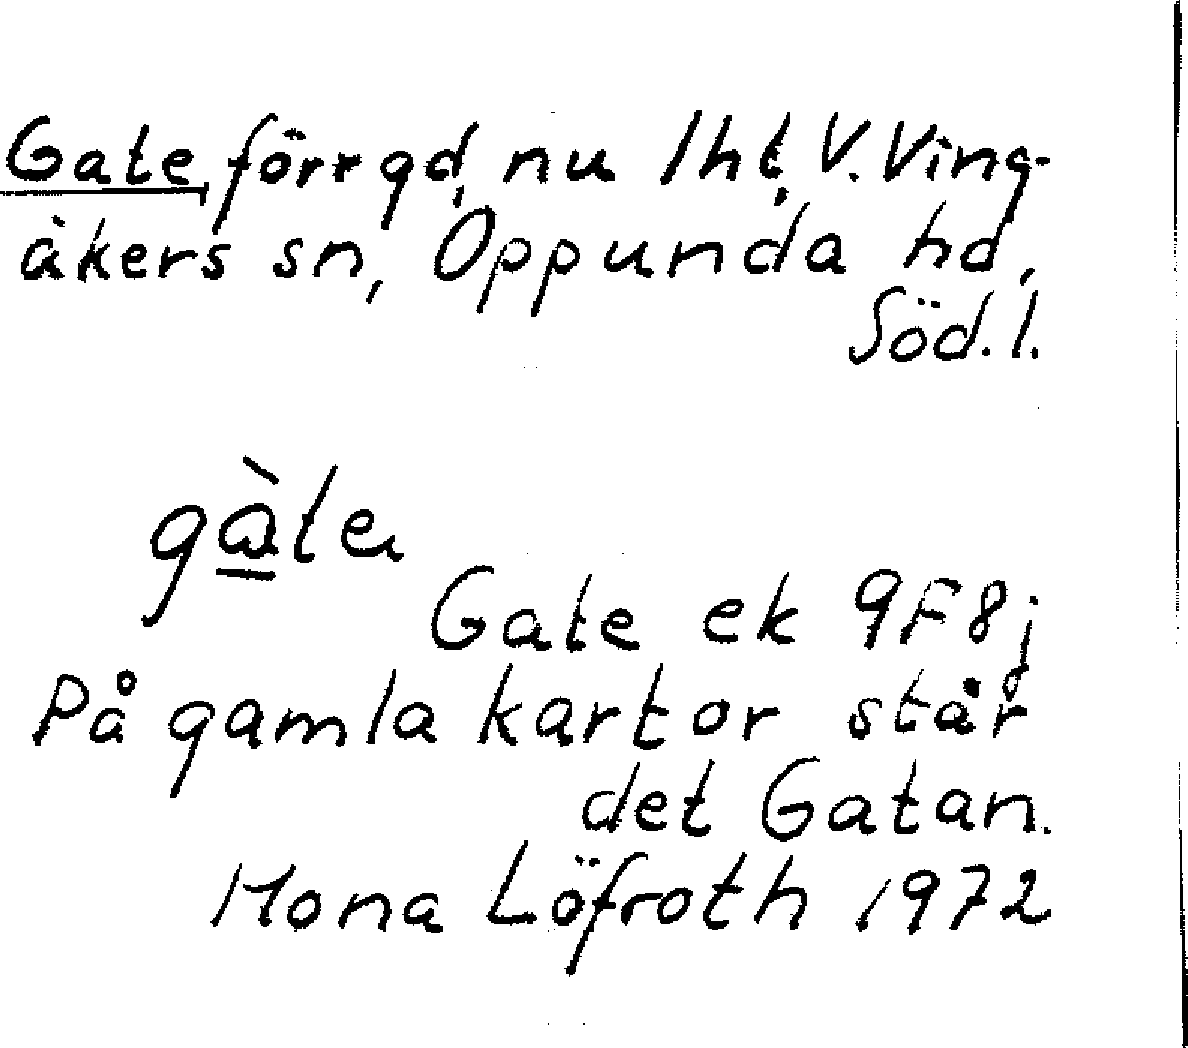 Gate, förr gd, nu lht, V. Ving-
åkers sn, Oppunda hd,
Söd. l.
gàte
Gate ek 9F8j
På gamla kartor står
det Gatan.
Mona Löfroth 1972